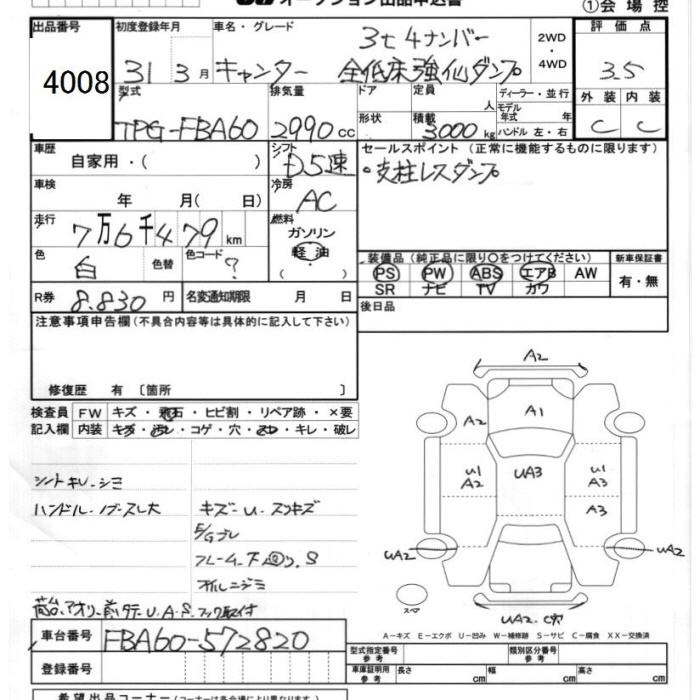 オークション出品申込書
①会場控
出品番号
4008
初度登録年月
31 3 月
車名・グレード
3t 4ナンバー
キャンター 全低床強化ダンプ
2WD
・
4WD
評価点
3.5
外装 内装
C C
型式
TPG-FBA60
排気量
2990 cc
ドア
形状
定員
人
積載
3000 kg
ディーラー・並行
モデル
年式 年
ハンドル 左・右
車歴
自家用・( )
シフト
D5速
車検
年 月( 日)
冷房
AC
走行
7万6千479 km
燃料
ガソリン
軽油
色
白
色替
色コード
?
R券
8.830 円
名変通知期限 月 日
セールスポイント(正常に機能するものに限ります)
・支柱レスダンプ
装備品(純正品に限り○をつけてください)
PS PW ABS エアB AW
SR ナビ TV カワ
新車保証書
有・無
後日品
注意事項申告欄(不具合内容等は具体的に記入して下さい)
修復歴 有 〔箇所 〕
検査員
記入欄
FW キズ・飛石・ヒビ割・リペア跡・×要
内装 キズ・汚レ・コゲ・穴・スレ・キレ・破レ
シートキレ.シミ
ハンドル.ノブスレ大
キズ-U.スリキズ
フレーム.下回リ.S
オイルニジミ
荷台.アオリ.前タテ.U.A.S.フック取付
車台番号
FBA60-572820
登録番号
A2
A2
A1
U1
A2
UA3
U1
A3
A3
UA2
UA2
スペア
UA2.C穴
A-キズ E-エクボ U-凹み W-補修跡 S-サビ C-腐食 XX-交換済
型式指定番号
参考
類別区分番号
参考
車庫証明用
参考
長さ cm 幅 cm 高さ cm
希望出品コーナー(コーナーは各会場により異なります)